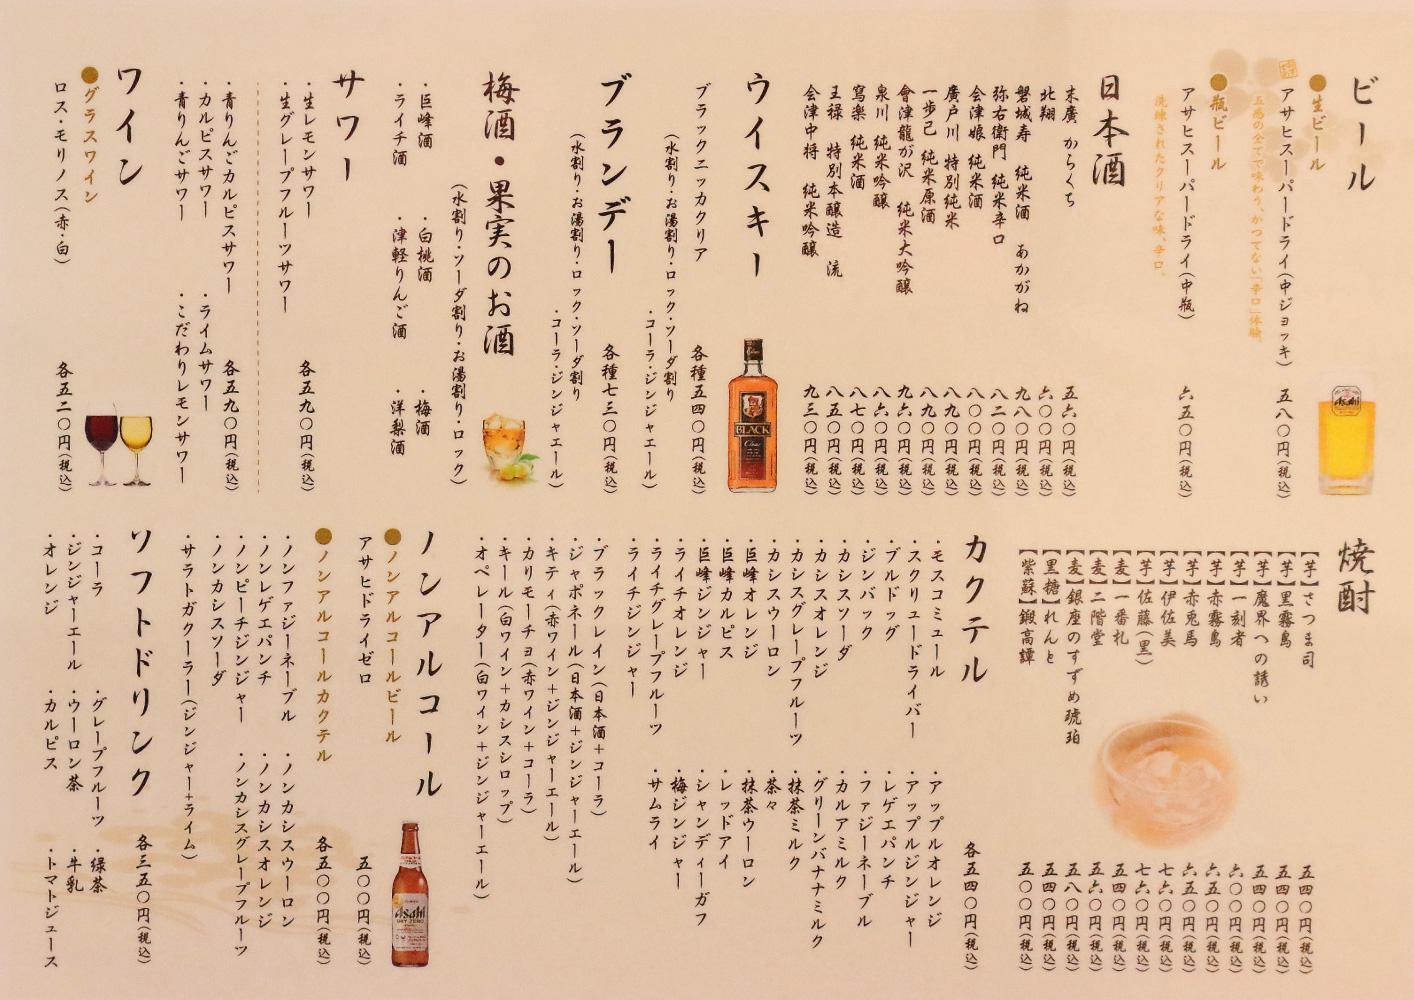 ビール
●生ビール
アサヒスーパードライ(中ジョッキ) 五八〇円(税込)
五感の全てで味わう、かつてない「辛口」体験。
●瓶ビール
アサヒスーパードライ(中瓶) 六五〇円(税込)
洗練されたクリアな味、辛口。
日本酒
末廣 からくち 五六〇円(税込)
北翔 六〇〇円(税込)
磐城寿 純米酒 あかがね 九八〇円(税込)
弥右衛門 純米辛口 八二〇円(税込)
会津娘 純米酒 八〇〇円(税込)
廣戸川 特別純米 八九〇円(税込)
一歩己 純米原酒 八九〇円(税込)
會津龍が沢 純米大吟醸 九六〇円(税込)
泉川 純米吟醸 八六〇円(税込)
寫楽 純米酒 八七〇円(税込)
王禄 特別本醸造 流 八五〇円(税込)
会津中将 純米吟醸 九三〇円(税込)
ウイスキー
BLACK
ブラックニッカクリア 各種五四〇円(税込)
(水割り・お湯割り・ロック・ソーダ割り
・コーラ・ジンジャエール)
ブランデー 各種七三〇円(税込)
(水割り・お湯割り・ロック・ソーダ割り
・コーラ・ジンジャエール)
梅酒・果実のお酒
(水割り・ソーダ割り・お湯割り・ロック)
・巨峰酒 ・白桃酒 ・梅酒
・ライチ酒 ・津軽りんご酒 ・洋梨酒
サワー
・生レモンサワー 各五九〇円(税込)
・生グレープフルーツサワー
・青りんごカルピスサワー 各五九〇円(税込)
・カルピスサワー ・ライムサワー
・青りんごサワー ・こだわりレモンサワー
ワイン
●グラスワイン
ロス・モリノス(赤・白) 各五二〇円(税込)
焼酎
【芋】さつま司 五四〇円(税込)
【芋】黒霧島 五四〇円(税込)
【芋】魔界への誘い 五四〇円(税込)
【芋】一刻者 六〇〇円(税込)
【芋】赤霧島 六五〇円(税込)
【芋】赤兎馬 六五〇円(税込)
【芋】伊佐美 七六〇円(税込)
【芋】佐藤(黒) 七六〇円(税込)
【麦】一番札 五四〇円(税込)
【麦】二階堂 五六〇円(税込)
【麦】銀座のすずめ琥珀 五八〇円(税込)
【黒糖】れんと 五四〇円(税込)
【紫蘇】鍛高譚 五〇〇円(税込)
カクテル 各五四〇円(税込)
・モスコミュール ・アップルオレンジ
・スクリュードライバー ・アップルジンジャー
・ブルドッグ ・レゲエパンチ
・ジンバック ・ファジーネーブル
・カシスソーダ ・カルアミルク
・カシスオレンジ ・グリーンバナナミルク
・カシスグレープフルーツ ・抹茶ミルク
・カシスウーロン ・茶々
・巨峰オレンジ ・抹茶ウーロン
・巨峰カルピス ・レッドアイ
・巨峰ジンジャー ・シャンディーガフ
・ライチオレンジ ・梅ジンジャー
・ライチグレープフルーツ ・サムライ
・ライチジンジャー
・ブラックレイン(日本酒+コーラ)
・ジャポネール(日本酒+ジンジャーエール)
・キティ(赤ワイン+ジンジャーエール)
・カリモーチョ(赤ワイン+コーラ)
・キール(白ワイン+カシスシロップ)
・オペレーター(白ワイン+ジンジャーエール)
ノンアルコール
●ノンアルコールビール
アサヒドライゼロ 五〇〇円(税込)
Asahi
DRY ZERO
●ノンアルコールカクテル 各五〇〇円(税込)
・ノンファジーネーブル ・ノンカシスウーロン
・ノンレゲエパンチ ・ノンカシスオレンジ
・ノンピーチジンジャー ・ノンカシスグレープフルーツ
・ノンカシスソーダ
・サラトガクーラー(ジンジャー+ライム)
ソフトドリンク 各三五〇円(税込)
・コーラ ・グレープフルーツ ・緑茶
・ジンジャーエール ・ウーロン茶 ・牛乳
・オレンジ ・カルピス ・トマトジュース